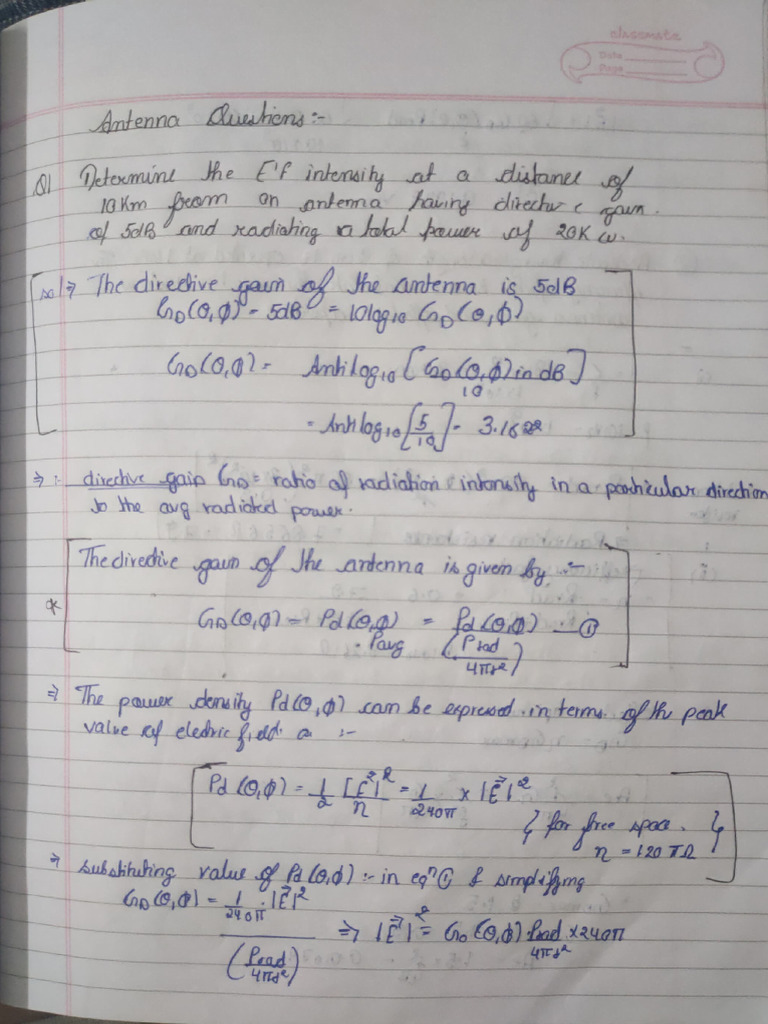 classmate
Date
Page
Antenna Questions:-
Q1 Determine the E'F intensity at a distance of
10Km from an antenna having directive gain
of 5dB and radiating a total power of 20Kw.
sol ⇒ The directive gain of the antenna is 5dB
GD(θ,φ) = 5dB = 10log10 GD(θ,φ)
GD(θ,φ) = Antilog10 [GD(θ,φ) in dB / 10]
= Antilog10 [5/10] = 3.1622
⇒ :- directive gain GD = ratio of radiation intensity in a particular direction
to the avg radiated power.
The directive gain of the antenna is given by :-
* GD(θ,φ) = Pd(θ,φ) / Pavg = Pd(θ,φ) / (Prad / 4πr²) — ①
⇒ The power density Pd(θ,φ) can be expressed in terms of the peak
value of electric field a :-
Pd(θ,φ) = 1/2 |E⃗|²/η = 1/240π × |E⃗|²
{ for free space. }
η = 120πΩ
⇒ substituting value of Pd(θ,φ) :- in eqn ① & simplifying
GD(θ,φ) = 1/240π · |E⃗|² / (Prad / 4πr²) ⇒ |E⃗|² = GD(θ,φ) Prad × 240π / 4πr²